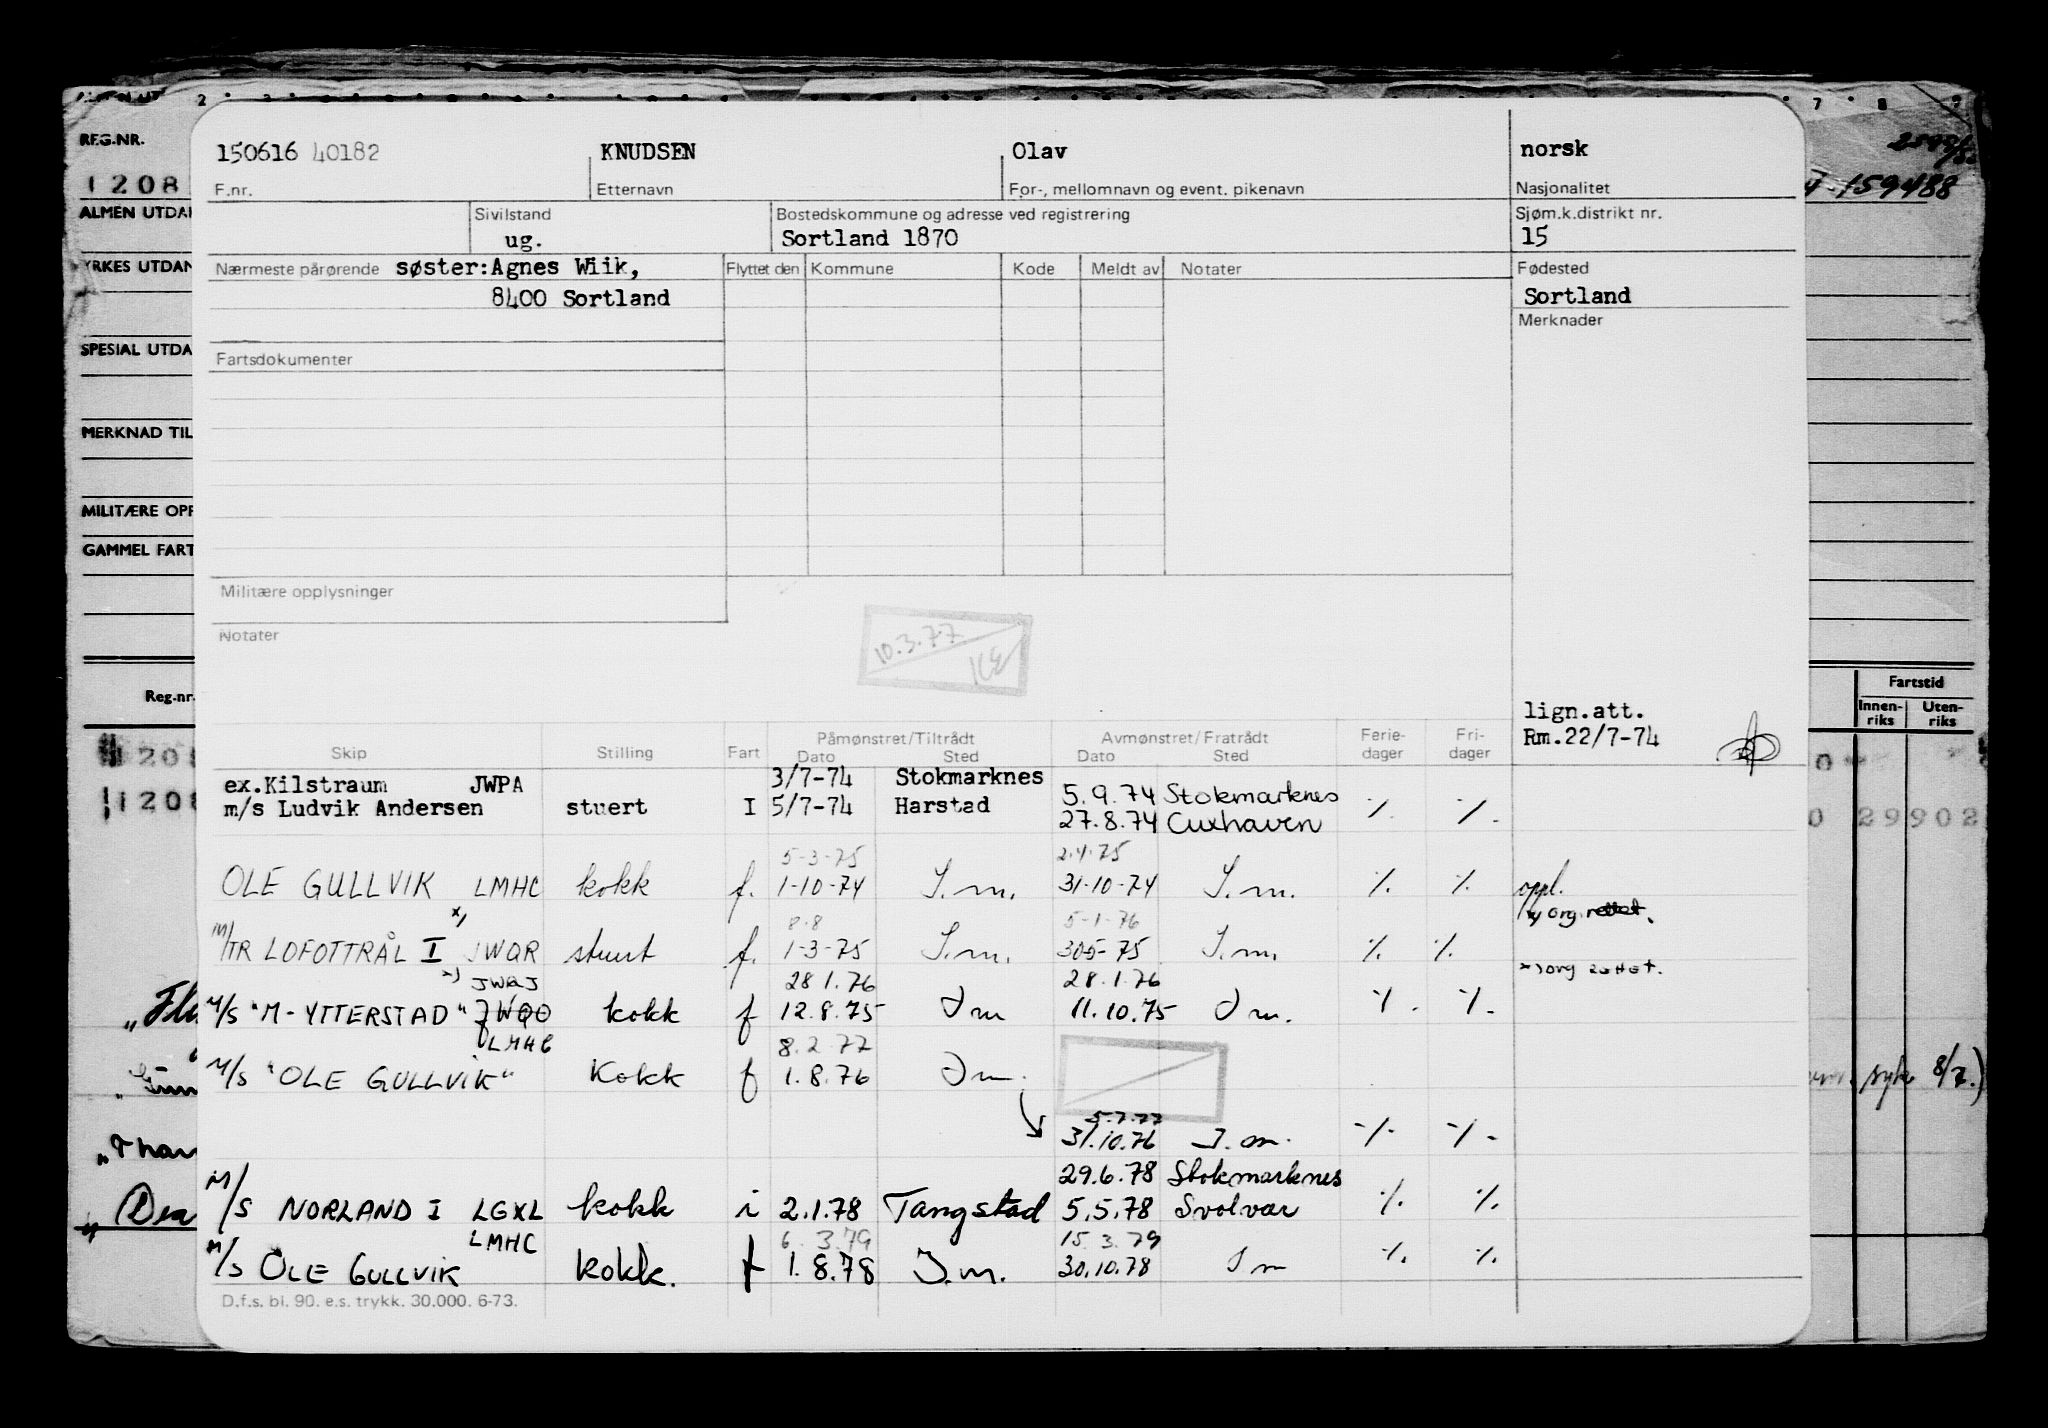 REG.NR.
1208
ALMEN UTDA
YRKES UTDAN
SPESIAL UTDA
MERKNAD TIL
MILITÆRE OPP
GAMMEL FART
Reg-nr.
1208
1208
150616 40182 KNUDSEN Olav norsk
F.nr. Etternavn For-, mellomnavn og event. pikenavn Nasjonalitet
159488
Sivilstand Bostedskommune og adresse ved registrering Sjøm.k.distrikt nr.
ug. Sortland 1870 15
Nærmeste pårørende søster:Agnes Wiik, Flyttet den Kommune Kode Meldt av Notater Fødested
8400 Sortland Sortland
Merknader
Fartsdokumenter
Militære opplysninger
Notater
10.3.77
KE
lign.att.
Rm.22/7-74
Fartstid
Innen-riks Uten-riks
Skip Stilling Fart Påmønstret/Tiltrådt Avmønstret/Fratrådt Ferie-dager Fri-dager
Dato Sted Dato Sted
ex.Kilstraum JWPA 3/7-74 Stokmarknes 5.9.74 Stokmarknes
m/s Ludvik Andersen stuert I 5/7-74 Harstad 27.8.74 Cuxhaven % %
5-3-75 2.4.75
OLE GULLVIK LMHC kokk f. 1-10-74 I.m. 31-10-74 I.m. % % oppl.
x) org. rettet.
8.8 5-1-76
M/TR LOFOTTRÅL I x) JWQR stuert f. 1-3-75 I.m. 305-75 I.m. % %
x) JWQJ 28 1.76 28.1.76 x) org rettet.
M/S "M-YTTERSTAD" JWQO kokk f 12.8.75 I m 11.10.75 I m. % %
LMHC 8.2 77
M/S "OLE GULLVIK" Kokk f 1.8.76 I m.
5.7.77
31.10.76 I.m. % %
29.6.78 Stokmarknes
M/S NORLAND I LGXL kokk i 2.1.78 Tangstad 5.5.78 Svolvær % %
LMHC 6. 3.79 15.3.79
M/S OLE GULLVIK kokk. f 1.8.78 I.m. 30.10.78 I m % %
D.f.s. bl. 90. e.s. trykk. 30.000. 6-73.
0 29902
syk 8/7.)